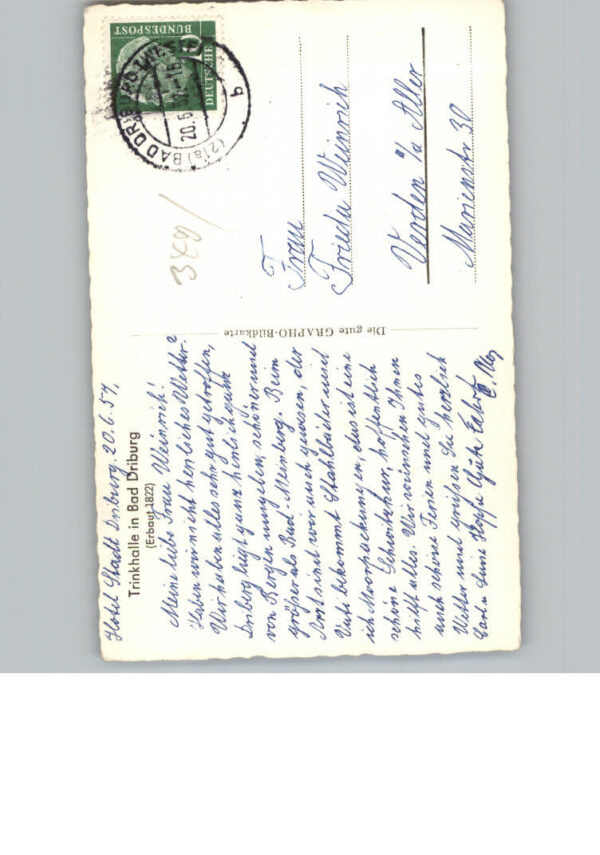 Hotel Stadt Driburg. 20.6.57,
Trinkhalle in Bad Driburg
(Erbaut 1822)
Meine liebe Frau Weinrich!
Haben wir nicht herrliches Wetter?
Wir haben alles sehr gut getroffen,
Driburg liegt ganz herrlich
von Bergen umgeben, schöner und
größer als Bad-Meinberg. Beim
Arzt sind wir auch gewesen, der
bekommt Stahlbäder und
ich Moorpackungen, das ist eine
schöne Schwitzkur, hoffentlich
hilft alles. Wir wünschen Ihnen
auch schöne Ferien und gutes
Wetter und grüßen Sie herzlich
Gute Fahrt
Die gute GRAPHO-Bildkarte
Frau
Frieda Weinrich
Verden a/d Aller
Marienstr 30
DEUTSCHE
BUNDESPOST
(21a) BAD DRIBURG WESTF
20.6
b